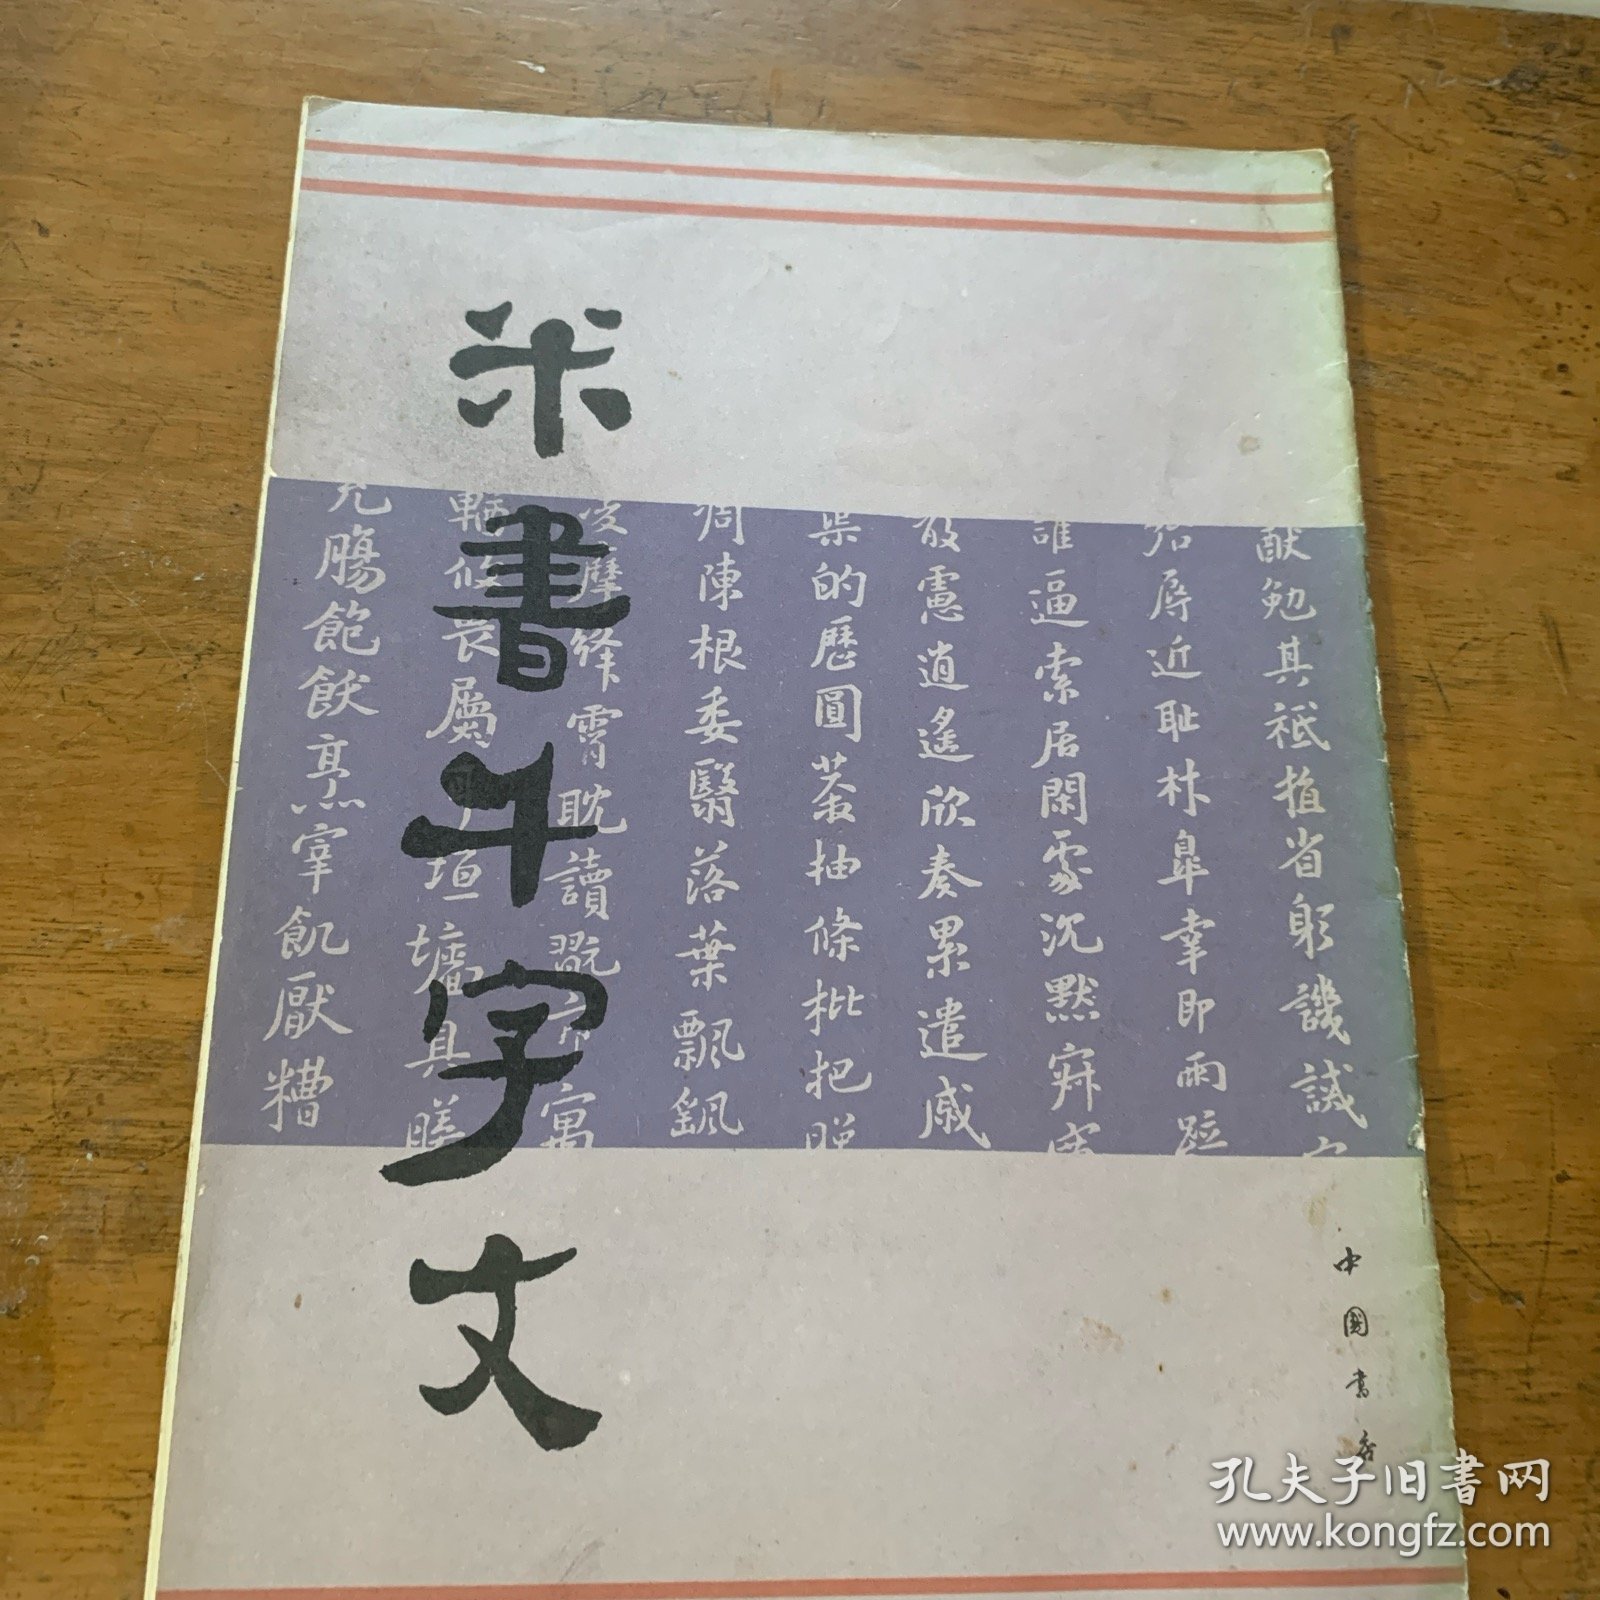 米書千字文
猷勉其祗植省躬譏誡
殆辱近恥林皋幸即兩疏
誰逼索居閑處沉默寂寥
散慮逍遙欣奏累遣慼
渠的歷圓莽抽條枇杷
凋陳根委翳落葉飄颻
凌摩絳霄耽讀翫市寓
輶攸畏屬耳垣墻具膳
充腸飽飫烹宰飢厭糟
中國書店
孔夫子旧書网
www.kongfz.com